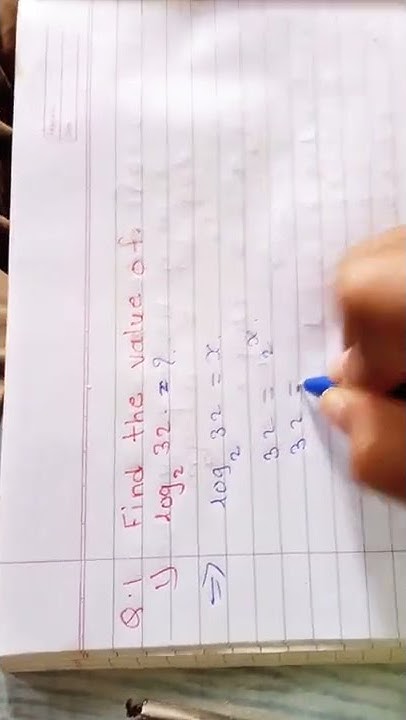 Q.1 Find the value of.
y log₂ 32 = ?
⇒ log₂ 32 = x
32 = 2ˣ.
32 =